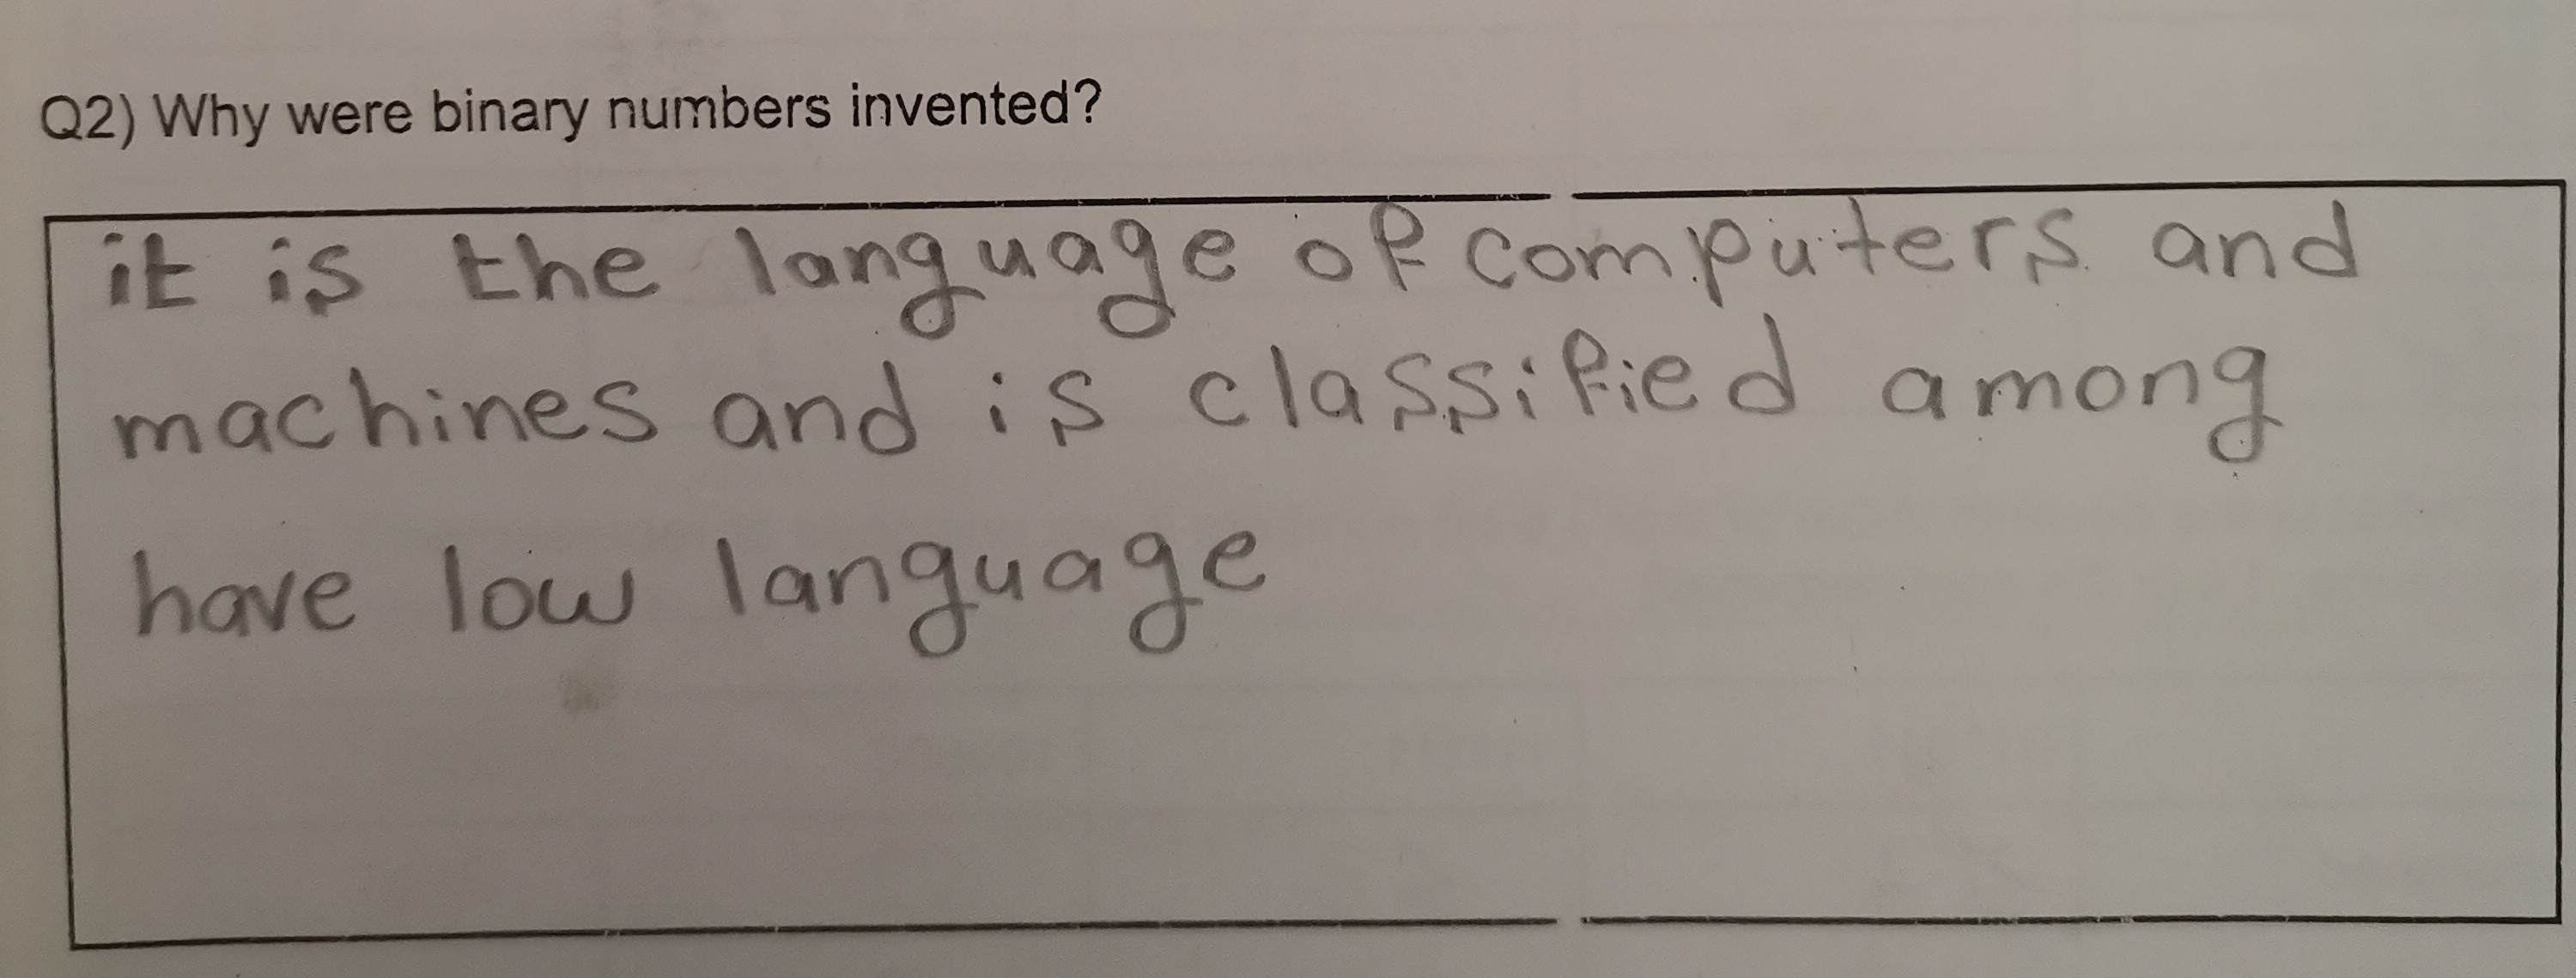 Q2) Why were binary numbers invented?
it is the language of computers and
machines and is classified among
have low language